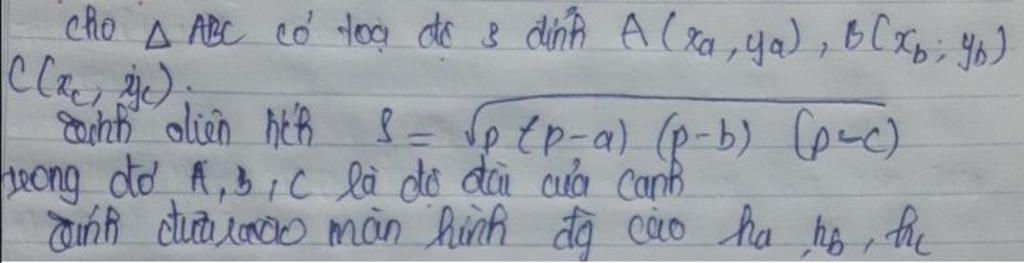 cho △ ABC có toạ độ 3 đỉnh A(xa, ya), B(xb; yb)
C(xc, yc).
diện tích S = √p(p-a) (p-b) (p-c)
trong đó A, B, C là độ dài của cạnh
màn hình độ cao ha, hb, hc